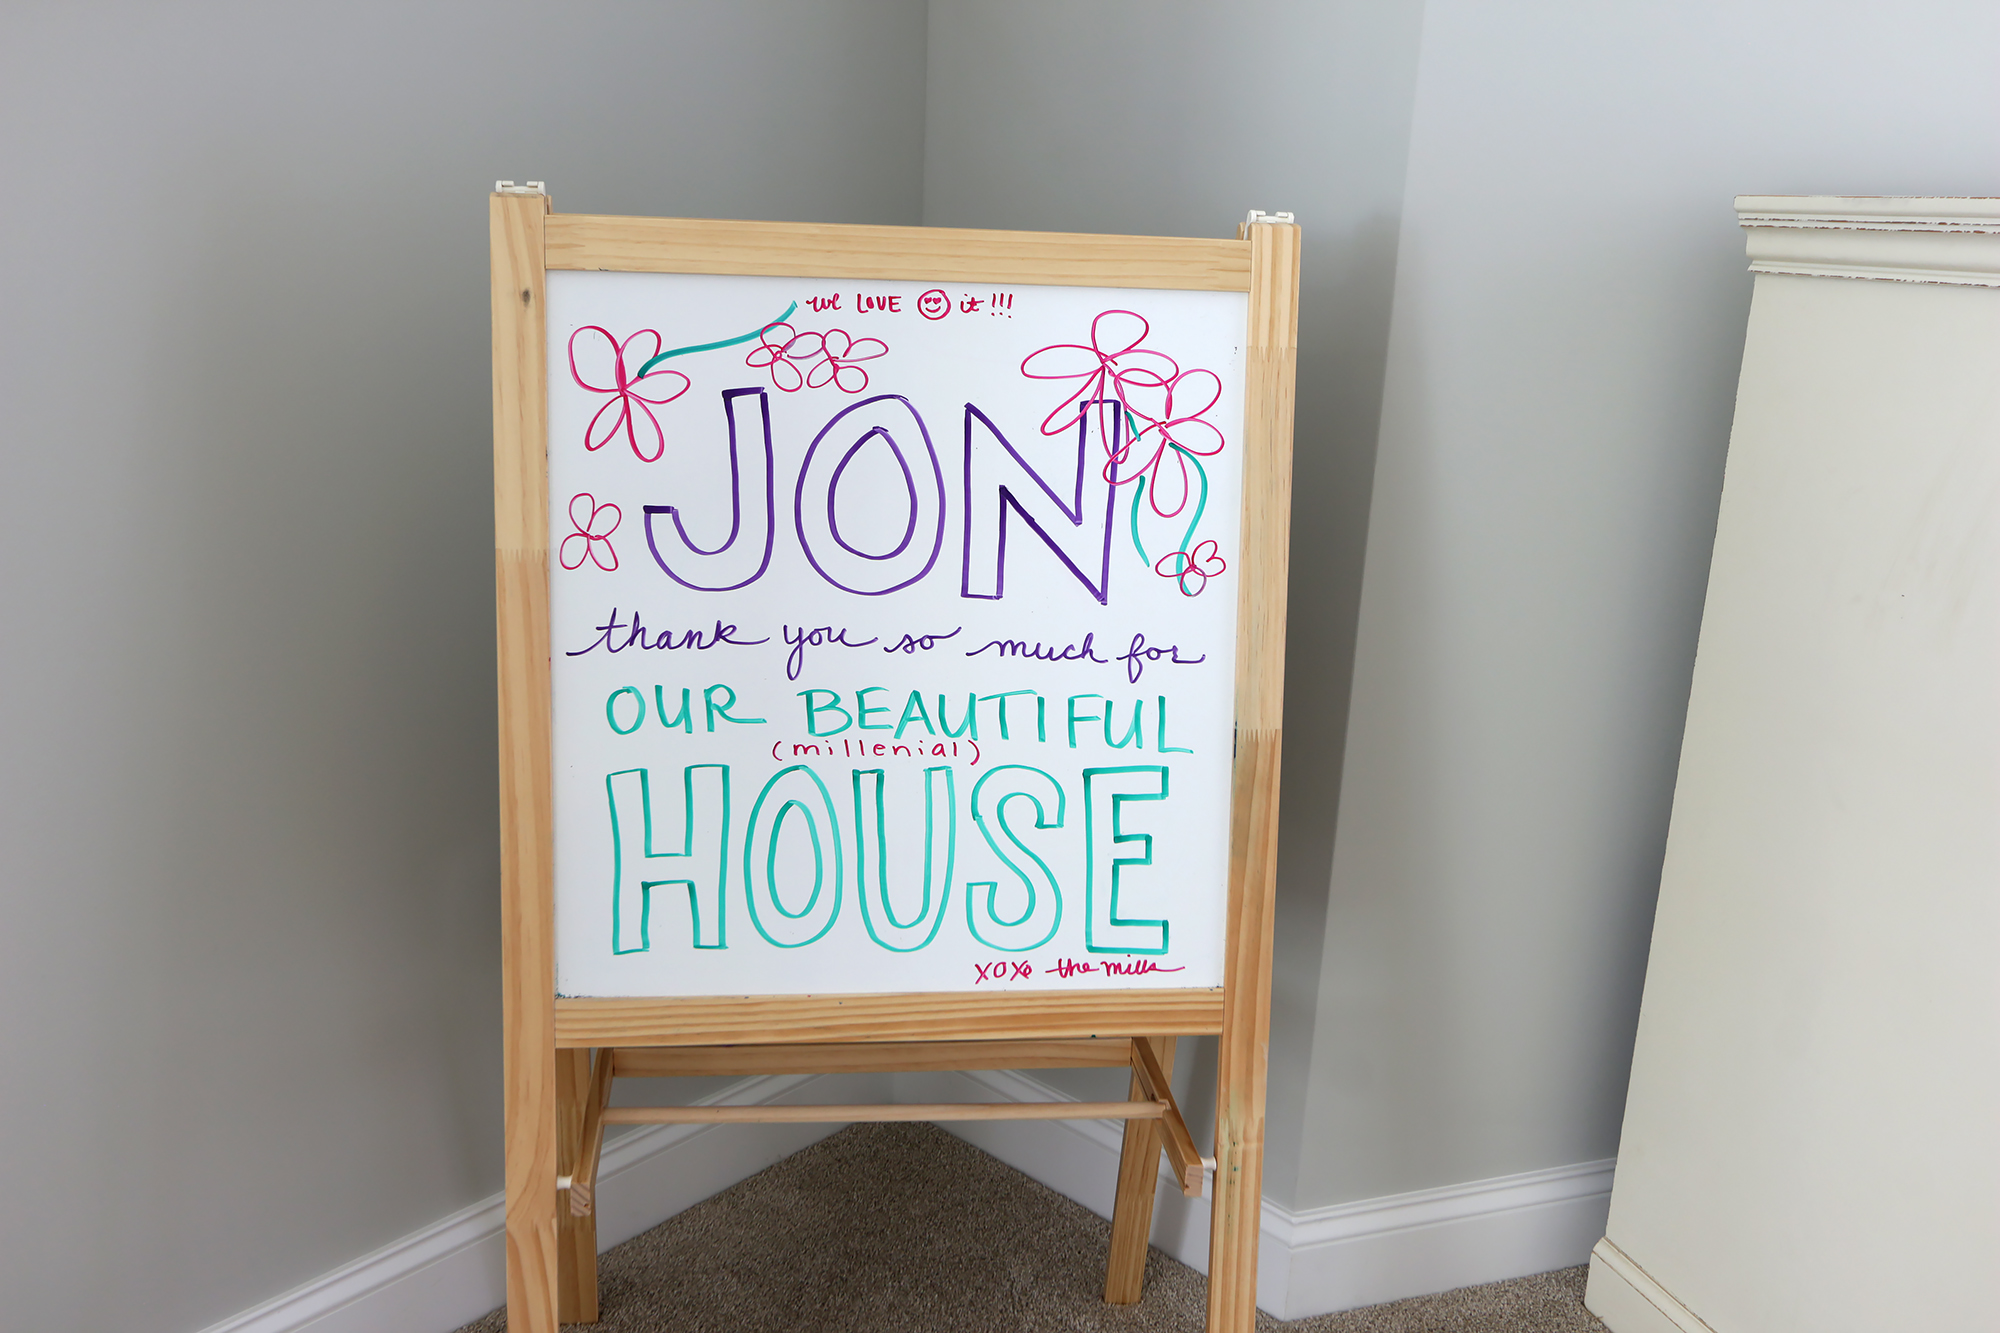 we LOVE it!!!
JON
thank you so much for
OUR BEAUTIFUL
(millenial)
HOUSE
XOXO the mills